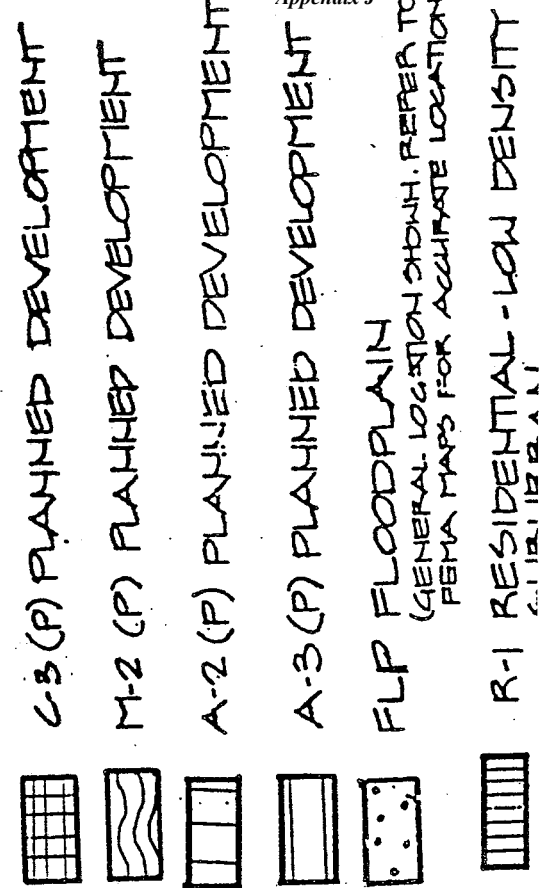 Appendix J
C-3 (P) PLANNED DEVELOPMENT
M-2 (P) PLANNED DEVELOPMENT
A-2 (P) PLANNED DEVELOPMENT
A-3 (P) PLANNED DEVELOPMENT
FLP FLOODPLAIN
(GENERAL LOCATION SHOWN. REFER TO
FEMA MAPS FOR ACCURATE LOCATION
R-1 RESIDENTIAL - LOW DENSITY